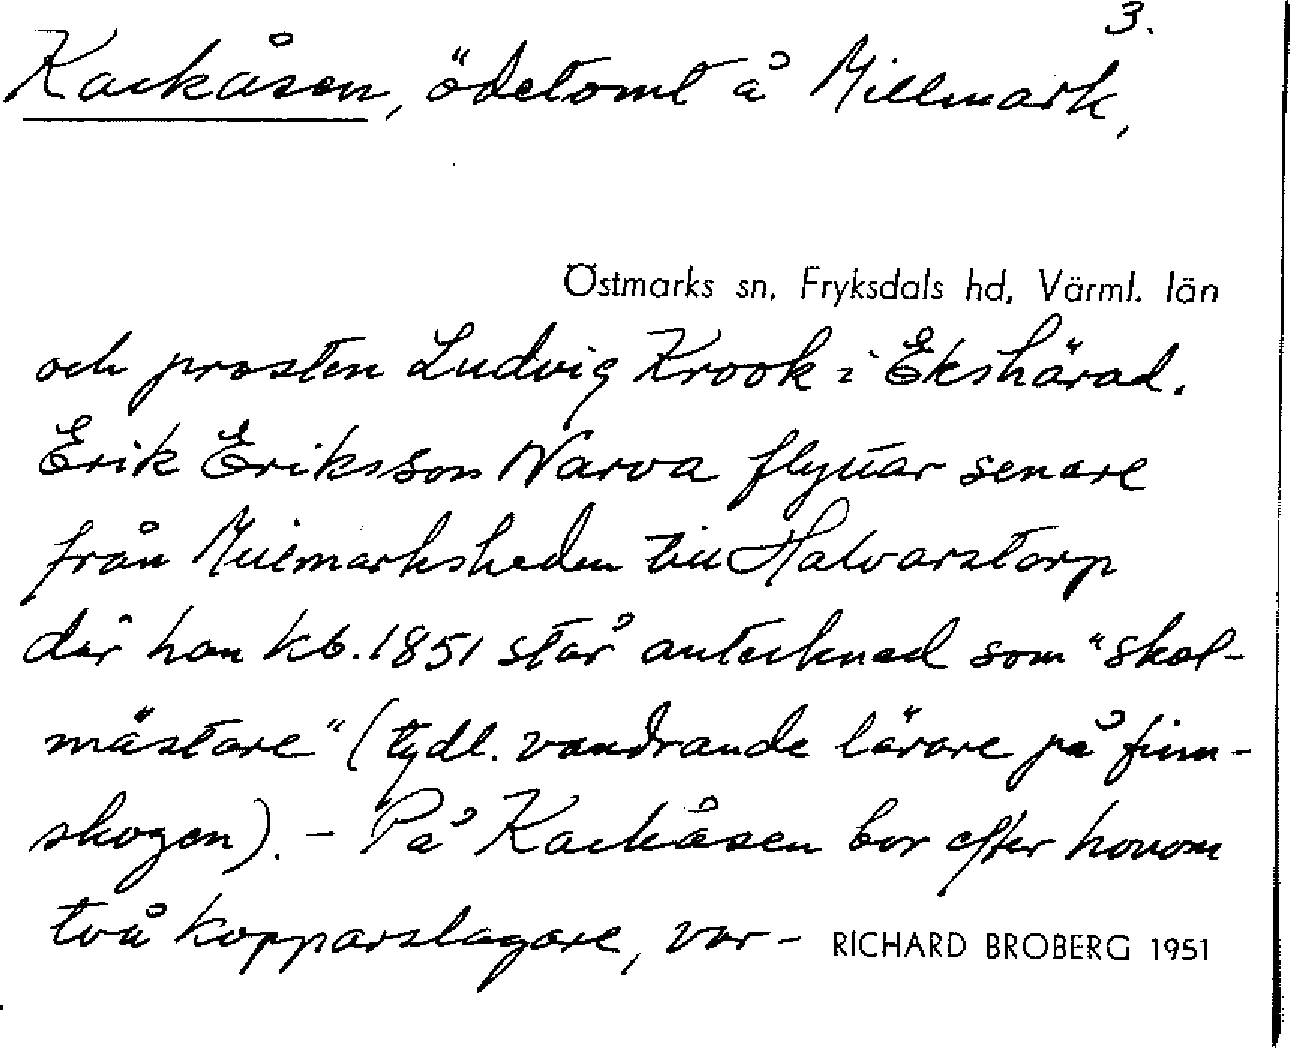 3.
Kackåsen, ödetomt å Millmark,
Östmarks sn, Fryksdals hd, Värml. län
och prosten Ludvig Krook i Ekshärad.
Erik Eriksson Narva flyttar senare
från Millmarksheden till Halvarstorp
där han kb. 1851 står antecknad som "skol-
mästare" (tydl. vandrande lärare på finn-
skogen). - På Kackåsen bor efter honom
två kopparslagare, var-
RICHARD BROBERG 1951